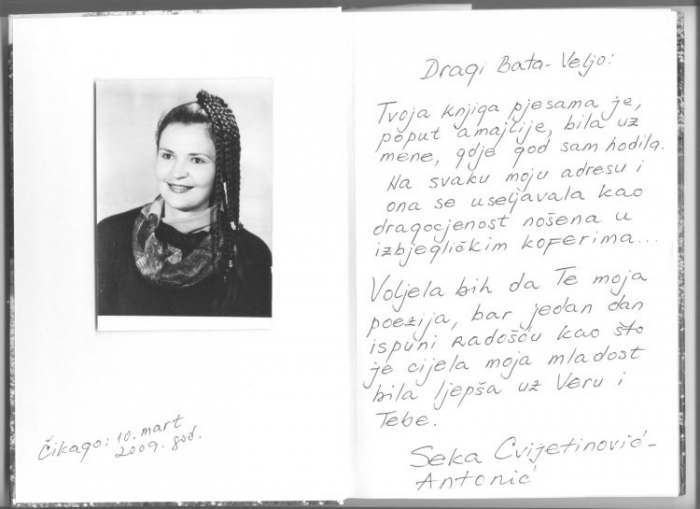 Čikago: 10. mart
2009. god.
Dragi Bata-Veljo:
Tvoja knjiga pjesama je,
poput amajlije, bila uz
mene, gdje god sam hodila.
Na svaku moju adresu i
ona se useljavala kao
dragocjenost nošena u
izbjegličkim koferima...
Voljela bih da Te moja
poezija, bar jedan dan
ispuni radošću kao što
je cijela moja mladost
bila ljepša uz Veru i
Tebe.
Seka Cvijetinović-
Antonić